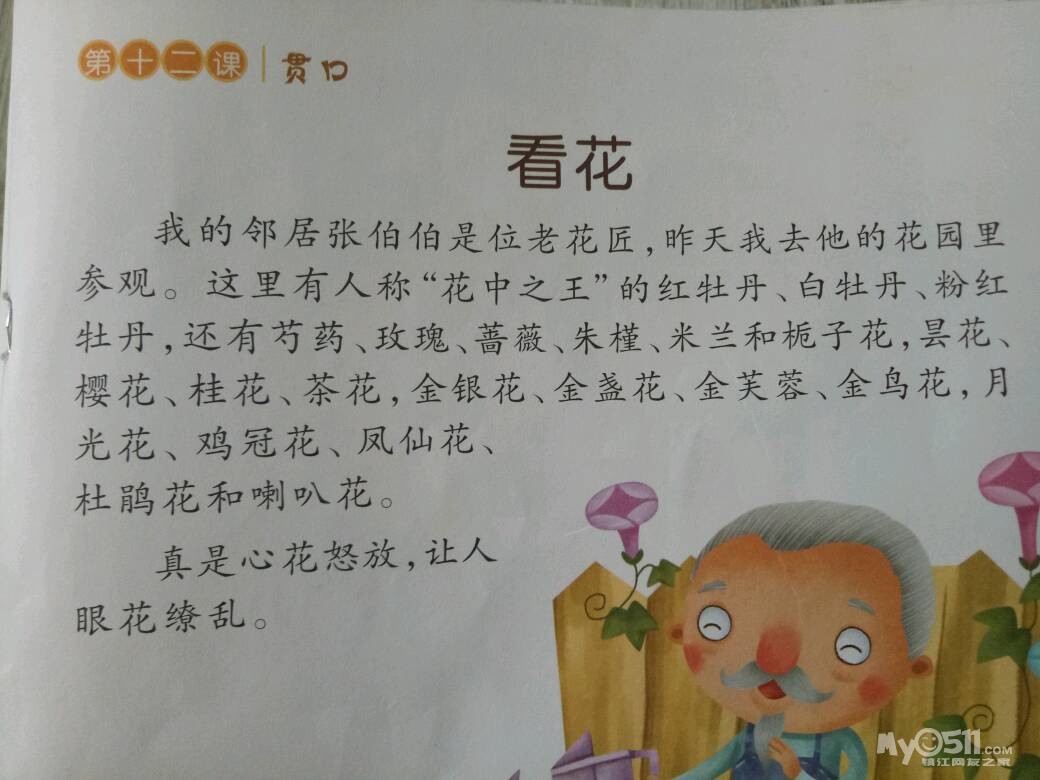 第十二课 | 贯口
看花
我的邻居张伯伯是位老花匠，昨天我去他的花园里
参观。这里有人称“花中之王”的红牡丹、白牡丹、粉红
牡丹，还有芍药、玫瑰、蔷薇、朱槿、米兰和栀子花，昙花、
樱花、桂花、茶花，金银花、金盏花、金芙蓉、金鸟花，月
光花、鸡冠花、凤仙花、
杜鹃花和喇叭花。
真是心花怒放，让人
眼花缭乱。
My0511.COM
镇江网友之家